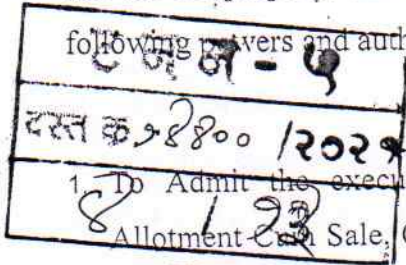 following powers and auth
ट न न - ५
दस्त क्र. १४४०० /२०२१
1. To Admit the execu
Allotment Cum Sale,